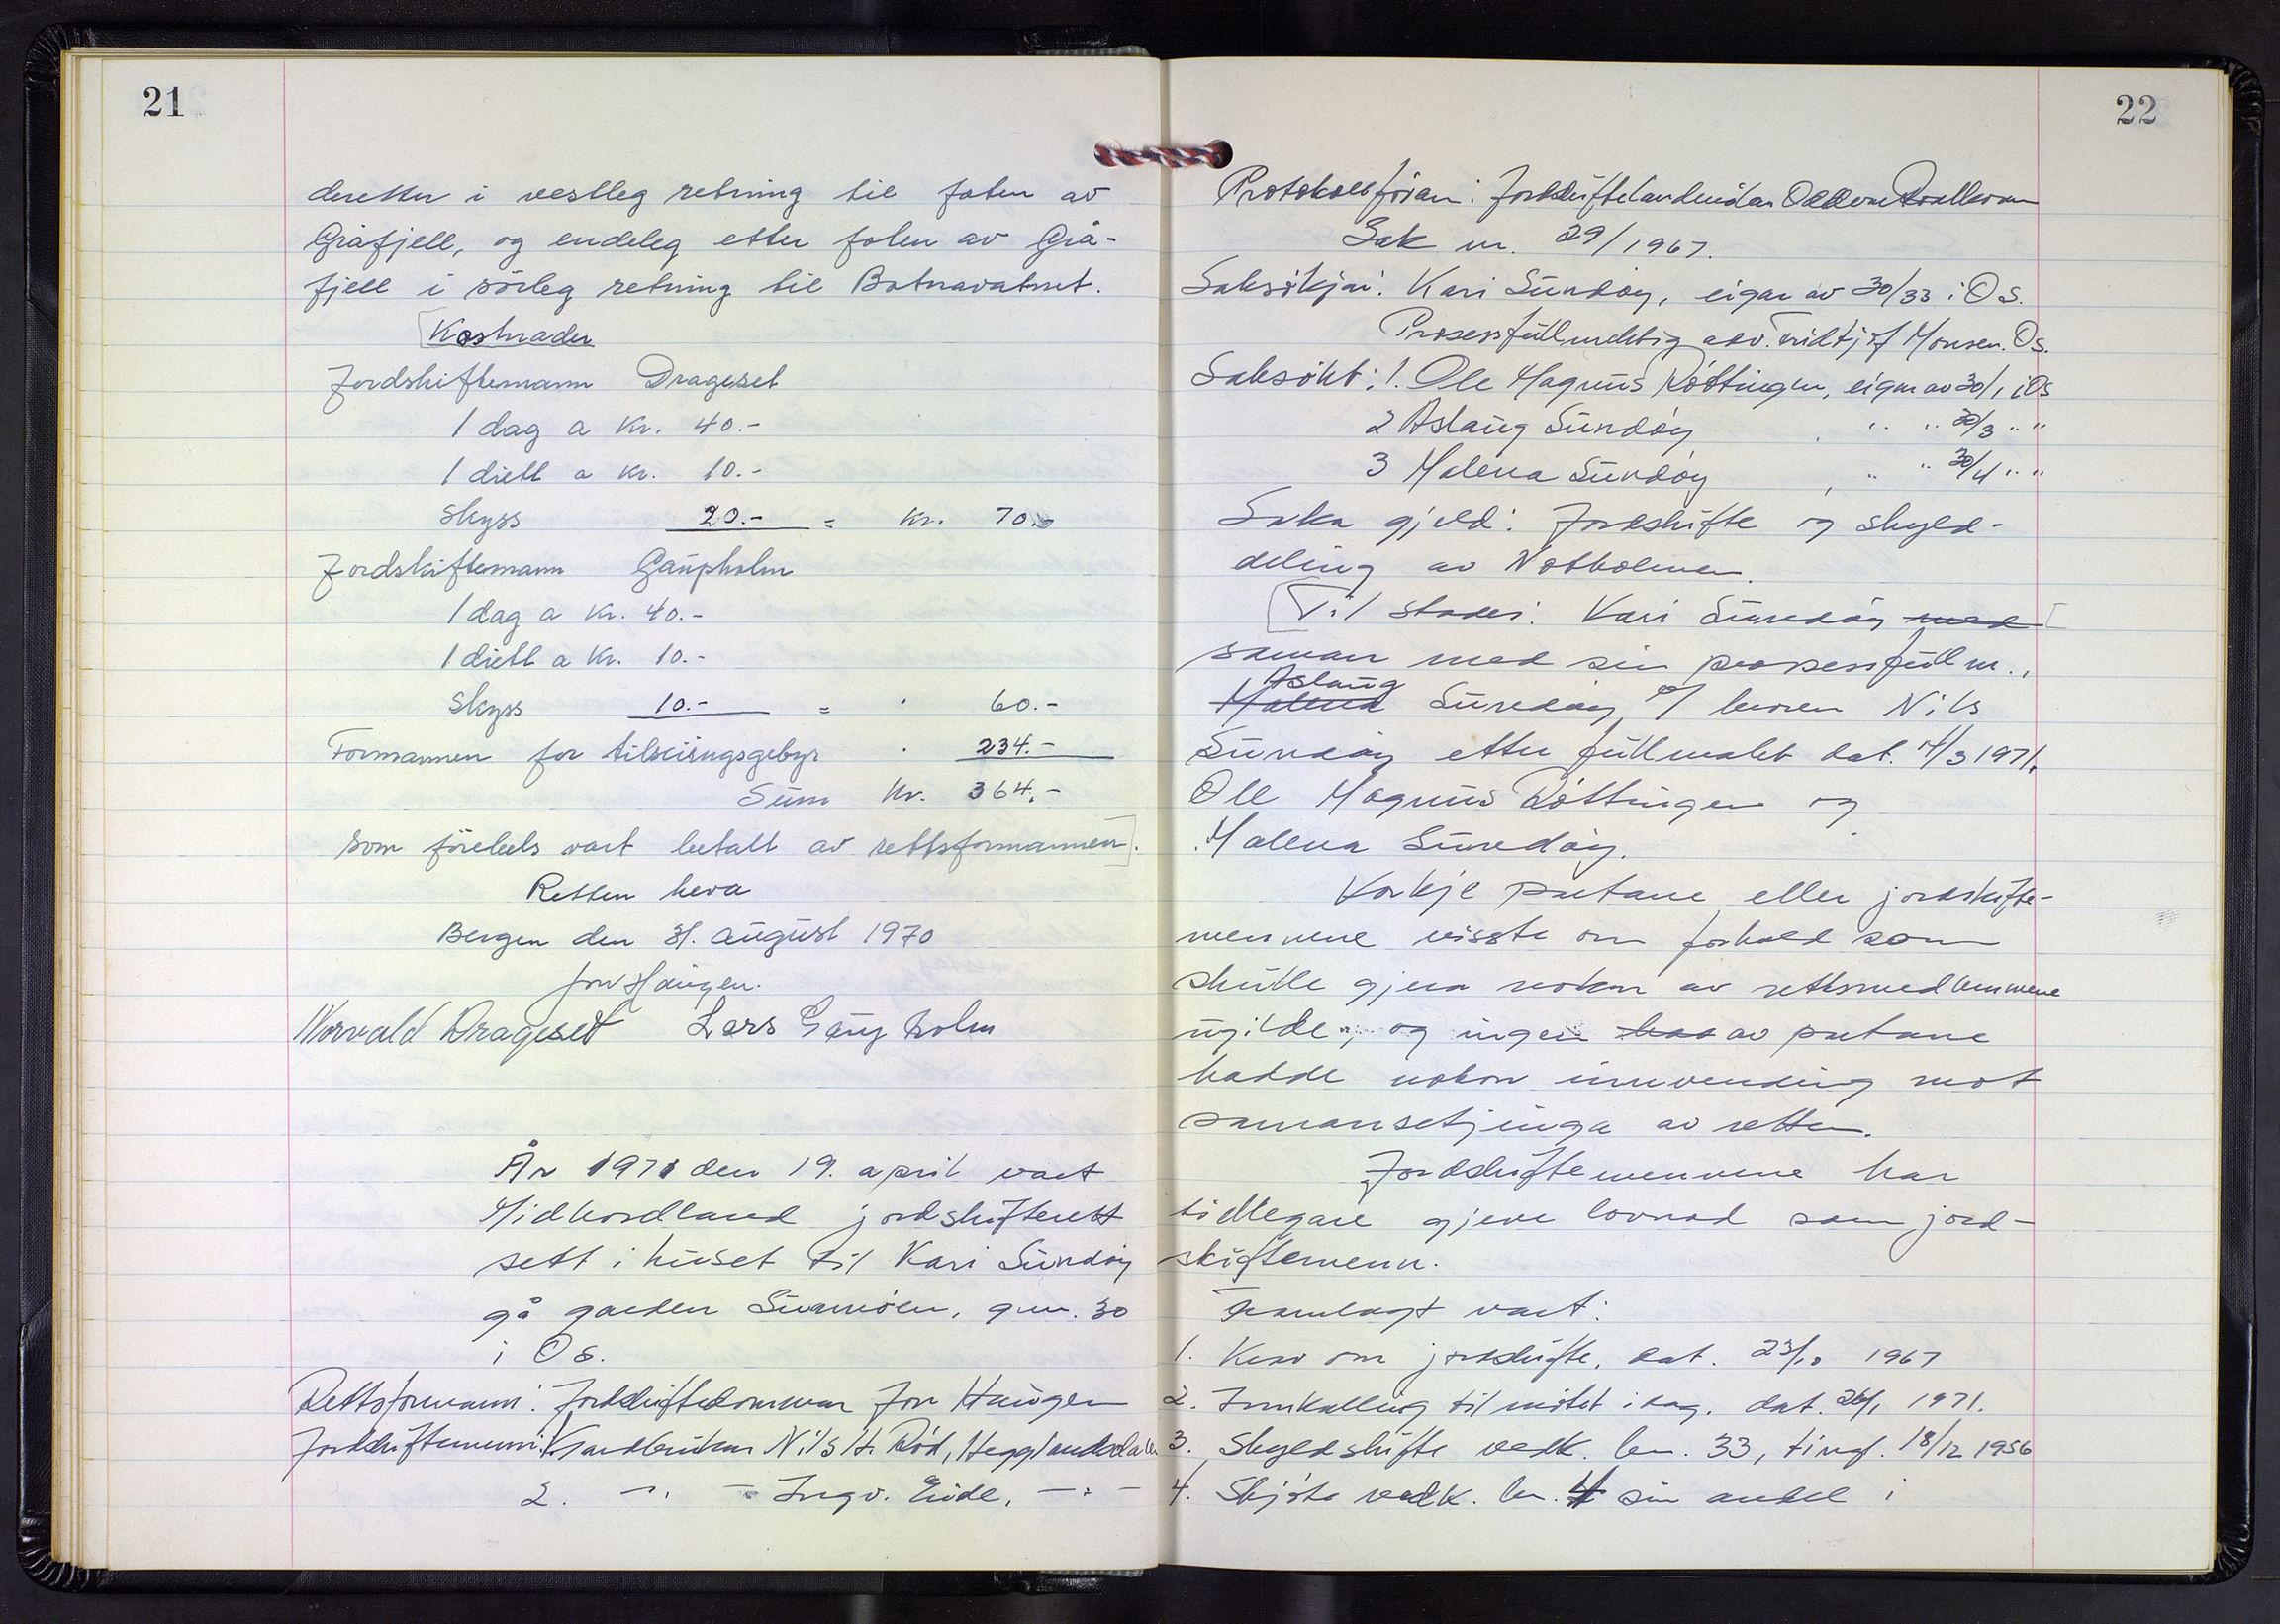 21
deretter i vestleg retning til foten av
Gråfjell, og endeleg etter foten av Grå-
fjell i sörleg retning til Botnavatnet.
Kostnader
Jordskiftemann Drageset
1 dag a kr. 40.-
1 diett a kr. 10.-
Skyss 20.- = kr. 70.-
Jordskiftemann Gaupholm
1 dag a kr. 40.-
1 diett a kr. 10.-
Skyss 10.- = " 60.-
Formannen for tilvisingsgebyr " 234.-
Sum kr. 364.-
som förebels vart betalt av rettsformannen.
Retten heva
Bergen den 31. august 1970
Jon Haugen.
Norvald Drageset Lars Gaupholm
År 1971 den 19. april vart
Midhordland jordskifterett
sett i huset til Kari Sundöy
på garden Sundöen, gnr. 30
i Os.
Rettsformann: Jordskiftedommar Jon Haugen
Jordskiftemenn: 1. Gardbrukar Nils H. Röd, Hegglandsdalen
2. -"- - Ingv. Eide, -"-
22
Protokollförar: Jordskiftekandidat Oddvar
Sak nr. 29/1967.
Saksökjar: Kari Sundöy, eigar av 30/33 i Os.
Prosessfullmektig adv. Fridtjof Monsen. Os.
Saksökt: 1. Ole Magnus Röttingen, eigar av 30/1 i Os
2 Aslaug Sundöy , " " 30/3 " "
3 Malena Sundöy , " " 30/4 " "
Saka gjeld: Jordskifte og skyld-
deling av Notholmen.
Til stades: Kari Sundöy med
saman med sin prosessfullm.,
Malena Aslaug Sundöy v/ Nils
Sundöy etter fullmakt dat. 14/3 1971.
Ole Magnus Röttingen og
Malena Sundöy.
Korkje partane eller jordskifte-
mennene visste om forhold som
skulle gjera nokon av rettsmedlemmene
ugilde, og ingen har av partane
hadde nokon innvending mot
samansetjinga av retten.
Jordskiftemennene har
tidlegare gjeve lovnad som jord-
skiftemenn.
Framlagt vart:
1. Krav om jordskifte, dat. 23/10 1967
2. Innkalling til mötet i dag, dat. 26/1 1971.
3. Skyldskifte vedk. bn. 33, tingl. 18/12 1956
4. Skjöte vedk. bn. 4 sin andel i